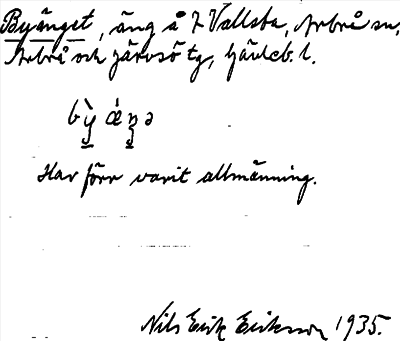 Byänget, äng å 7 Vallsta, Arbrå sn,
Arbrå och Järvsö tg, Gävleb. l.
bỳ ǽŋə
Har förr varit allmänning.
Nils Erik Eriksson 1935.